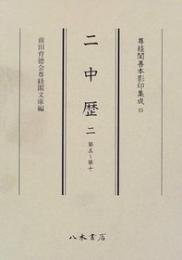 尊経閣善本影印集成
二中歴 二
第五~第十
前田育徳会尊経閣文庫編
八木書店